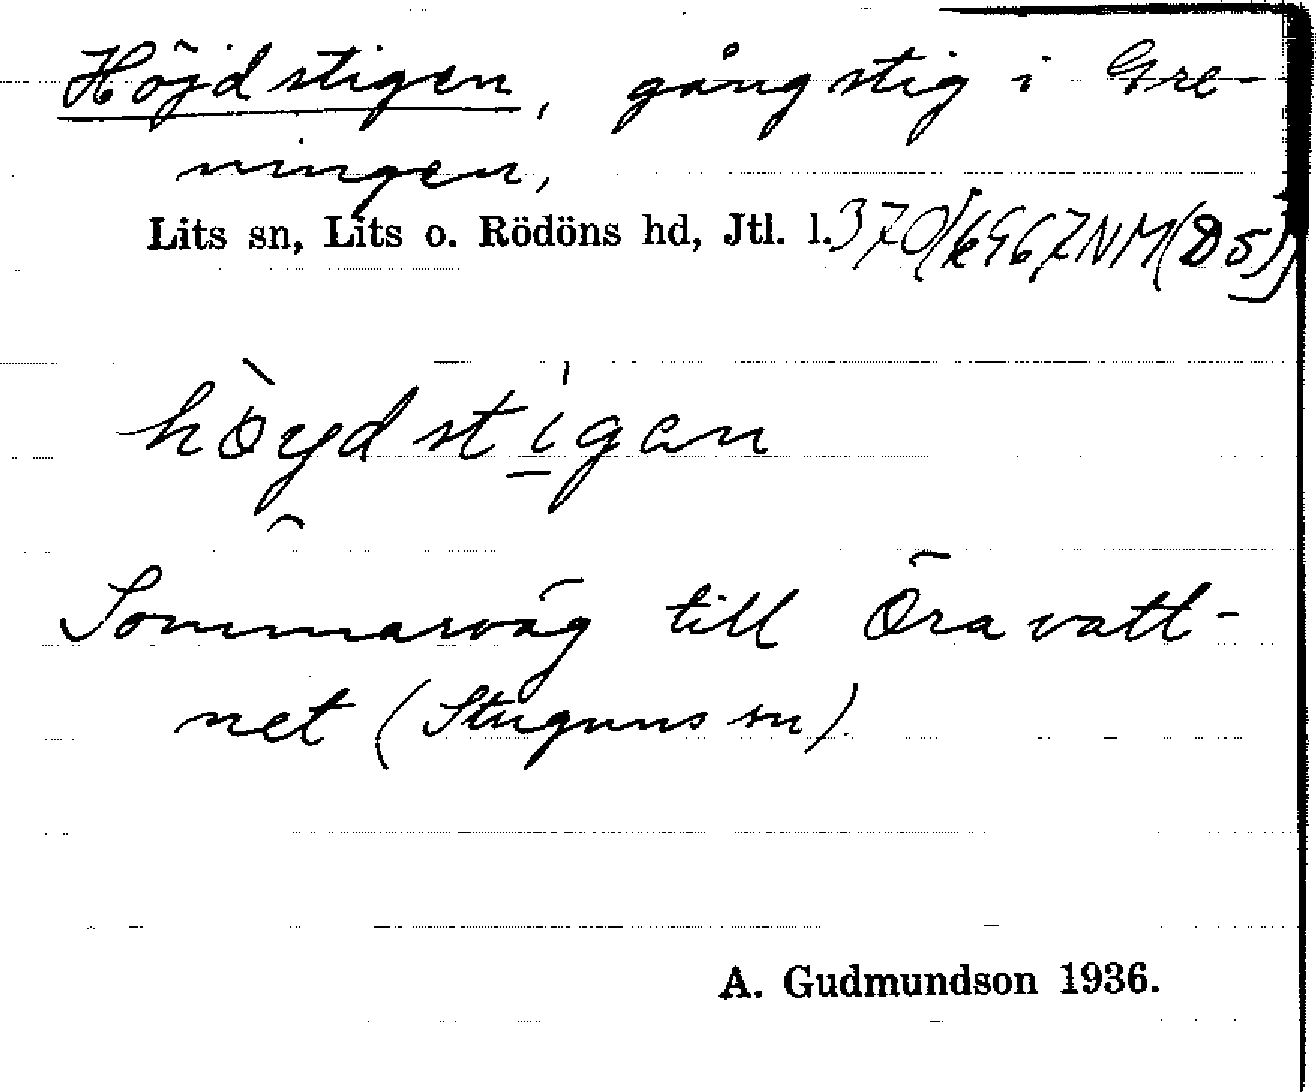 Höjdstigen, gångstig i Gre-
ningen,
Lits sn, Lits o. Rödöns hd, Jtl. l. 370/6967NM(D5)
höydstigan
Sommarväg till Öravatt-
net (Stuguns sn).
A. Gudmundson 1936.